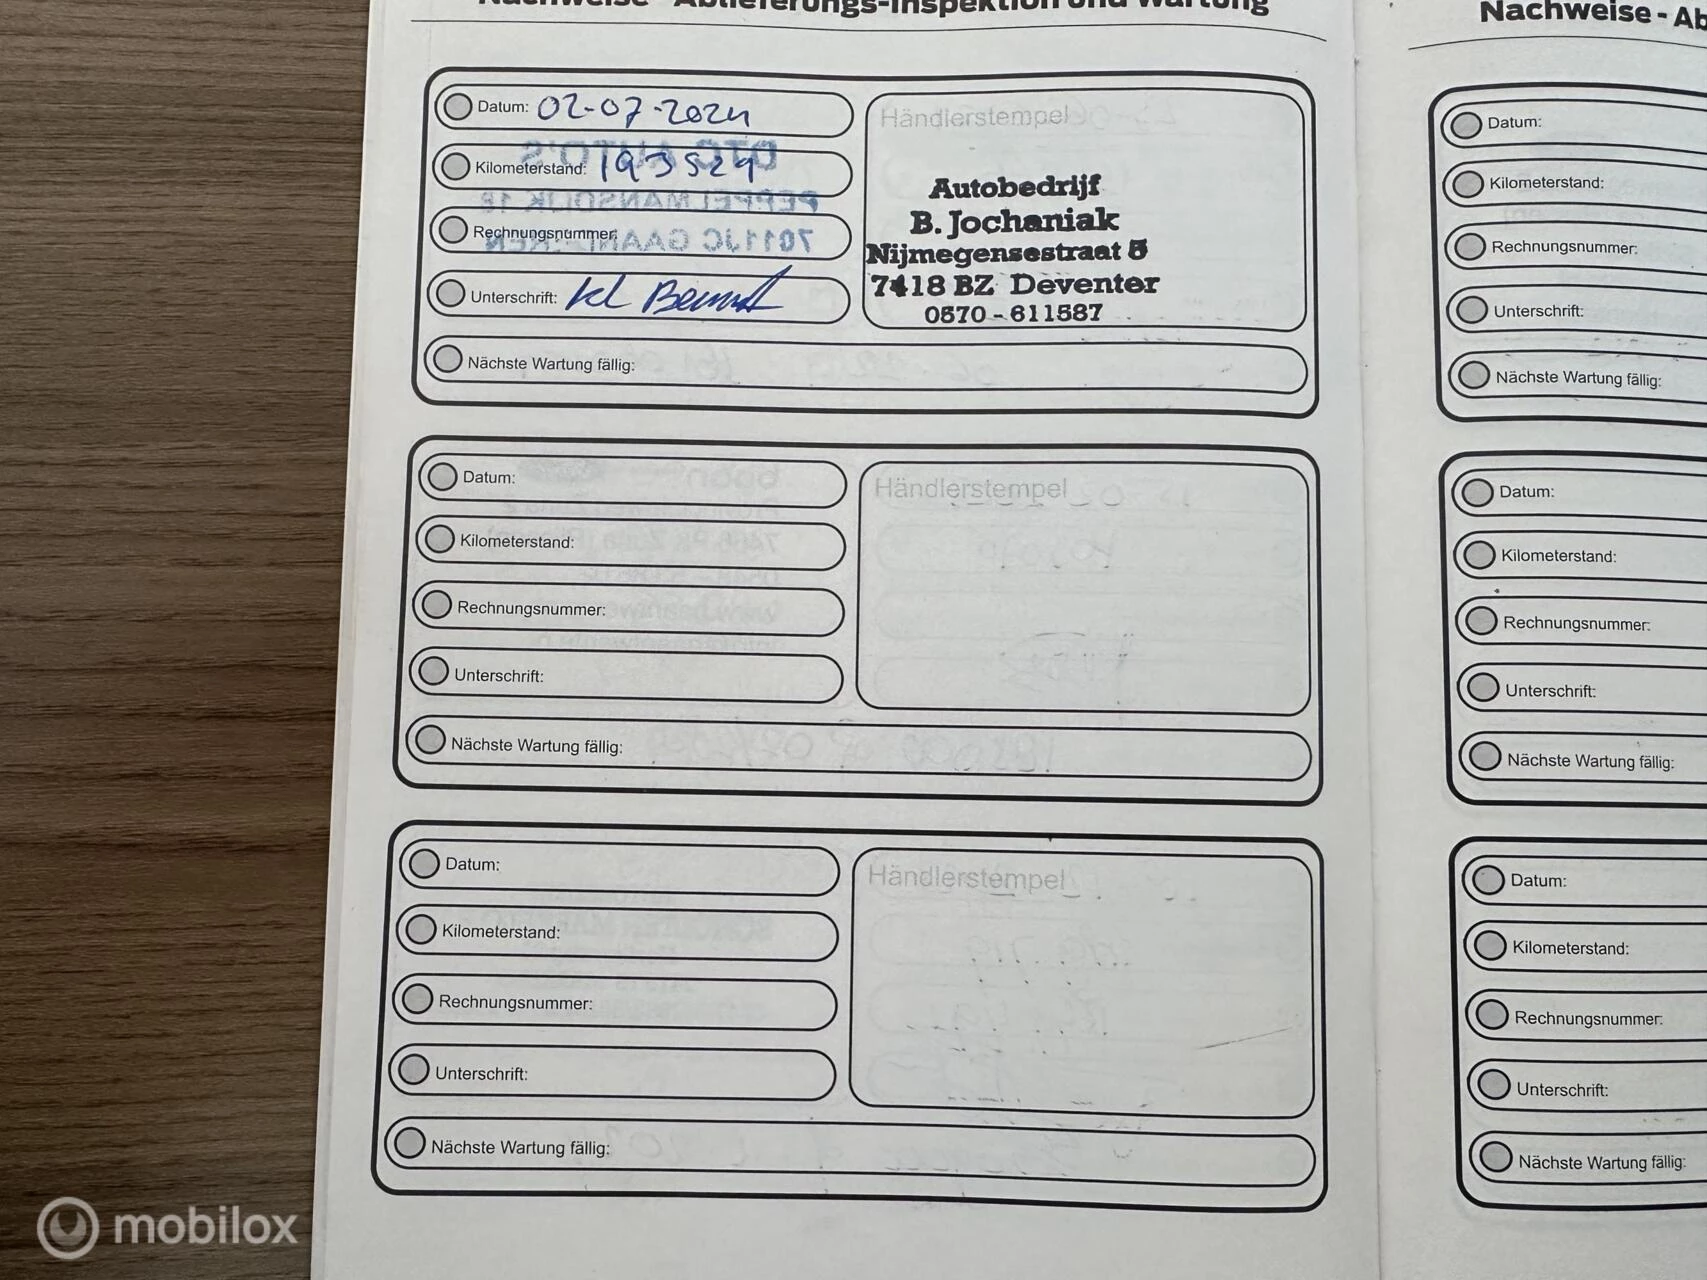 Nachweise - Ablieferungs-Inspektion und Wartung
Datum: 02-07-2024
Kilometerstand: 193529
Rechnungsnummer:
Unterschrift:
Nächste Wartung fällig:
Händlerstempel
Autobedrijf
B. Jochaniak
Nijmegensestraat 5
7418 BZ Deventer
0570-611587
DTC AUTO'S
PEPPELMANSDIJK 18
7011JC GAANDEREN
Datum:
Kilometerstand:
Rechnungsnummer:
Unterschrift:
Nächste Wartung fällig:
Händlerstempel
Datum:
Kilometerstand:
Rechnungsnummer:
Unterschrift:
Nächste Wartung fällig:
Händlerstempel
Nachweise - Ab
Datum:
Kilometerstand:
Rechnungsnummer:
Unterschrift:
Nächste Wartung fällig:
Datum:
Kilometerstand:
Rechnungsnummer:
Unterschrift:
Nächste Wartung fällig:
Datum:
Kilometerstand:
Rechnungsnummer:
Unterschrift:
Nächste Wartung fällig:
mobilox